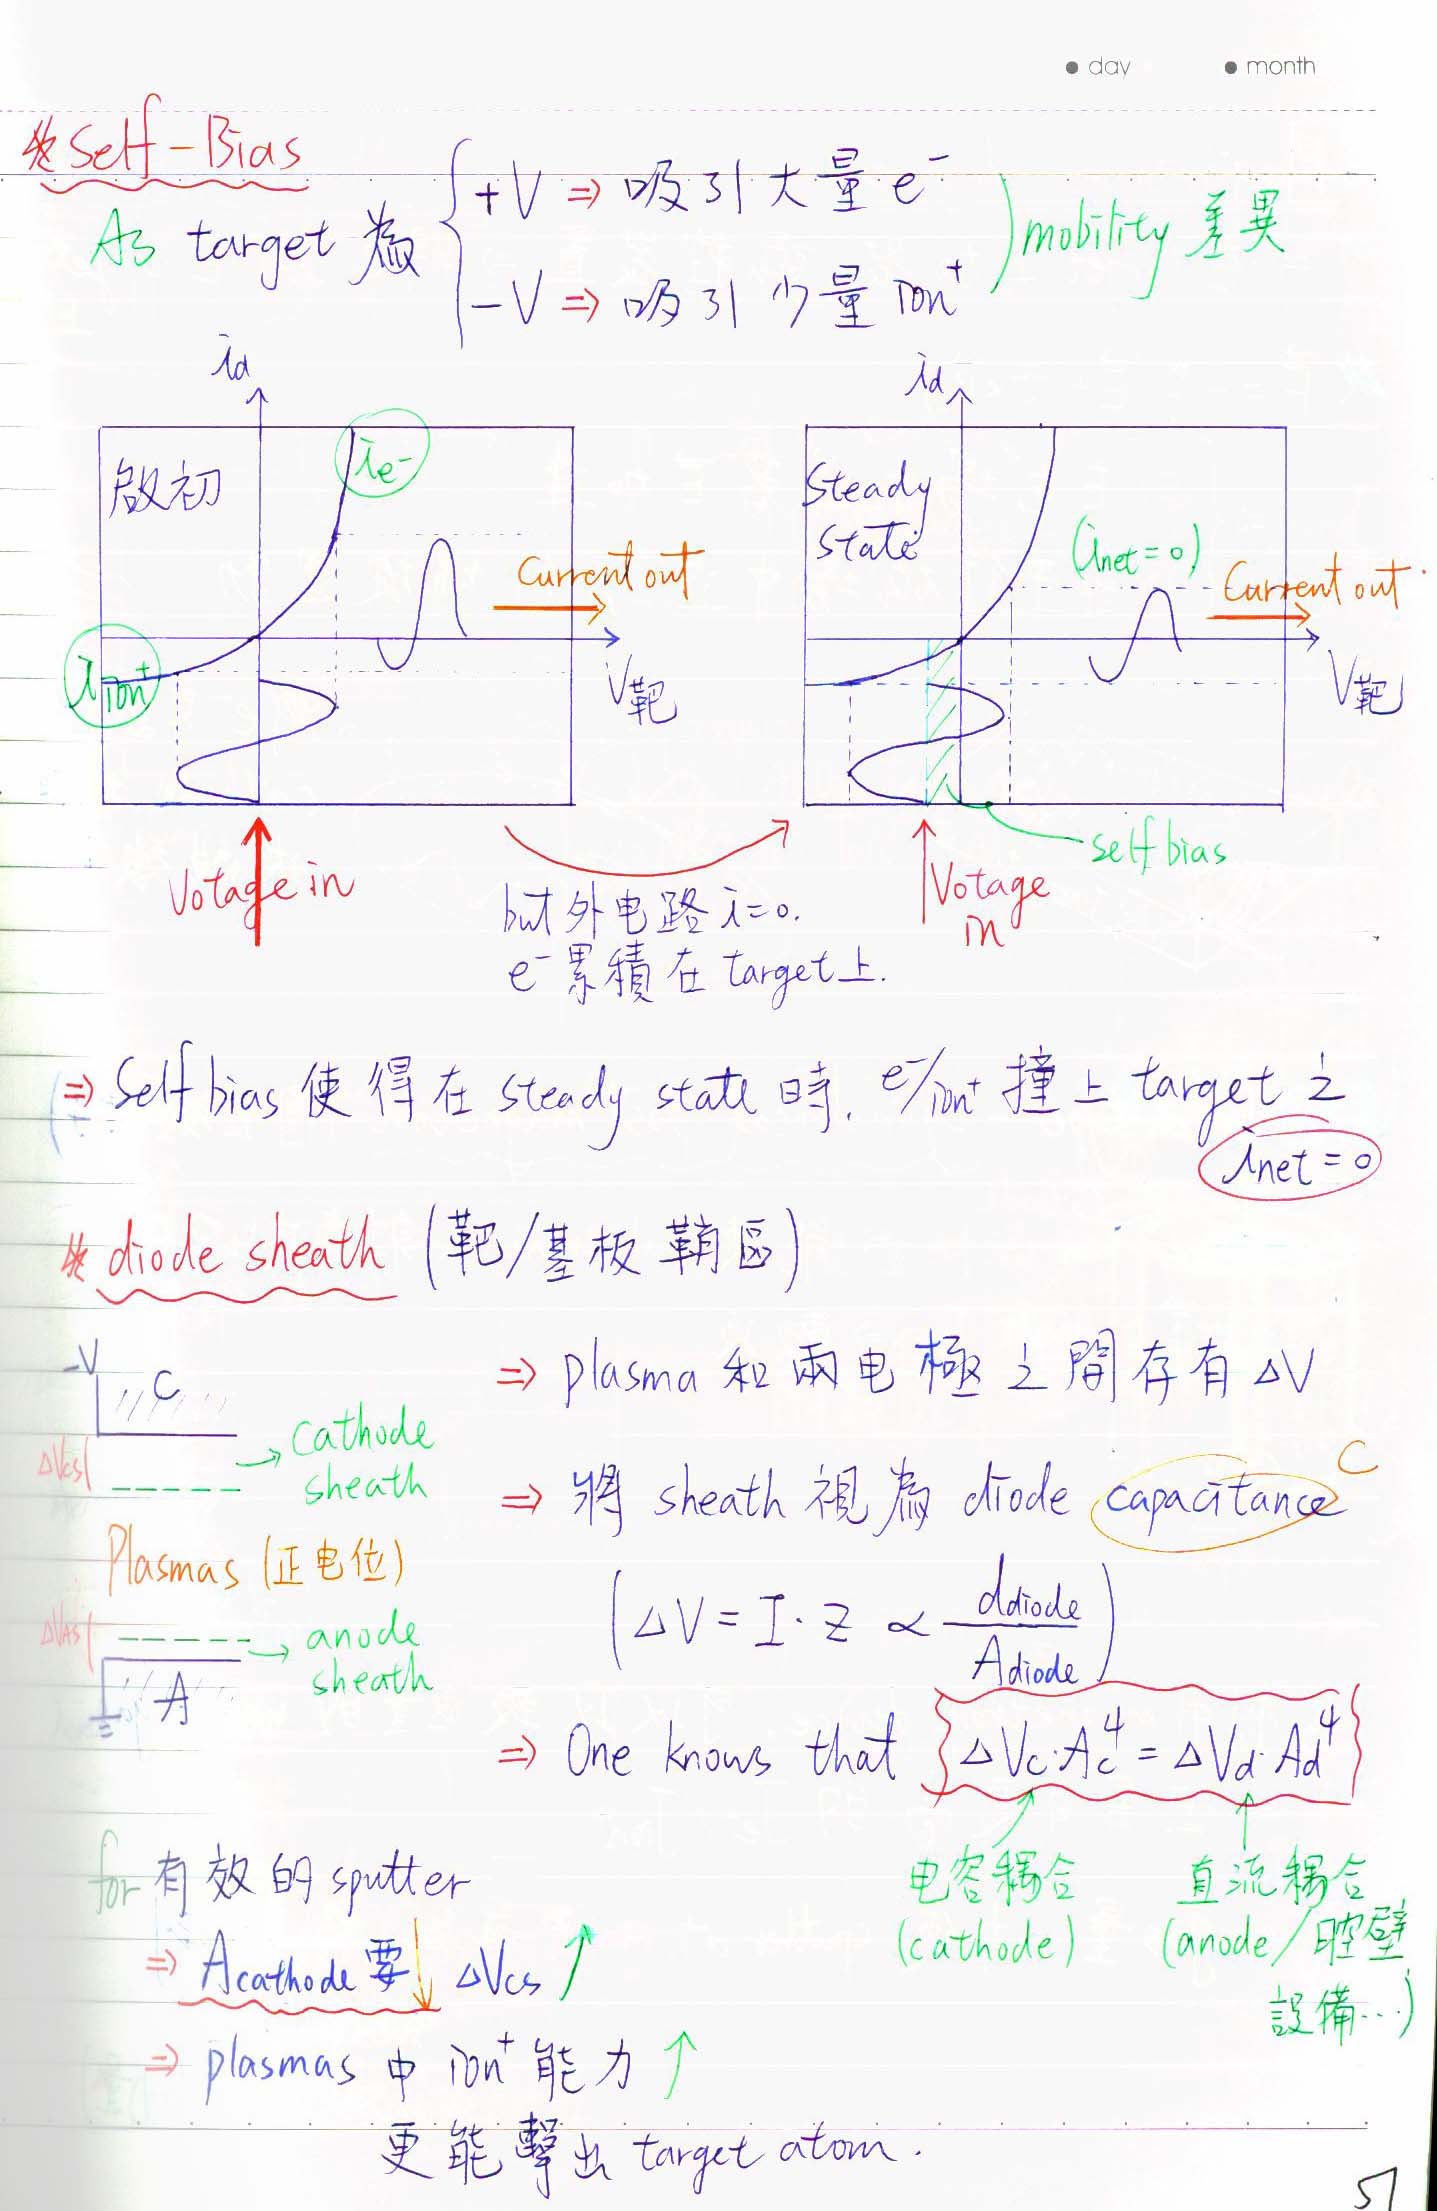 day month
*Self-Bias
As target 為 +V ⇒ 吸引大量 e⁻
-V ⇒ 吸引少量 ion⁺
mobility 差異
id
啟初
ie-
iion⁺
Current out
V靶
Votage in
id
Steady
state
(inet = 0)
Current out
V靶
self bias
Votage
in
but 外电路 i=0.
e⁻累積在 target上.
⇒ Self bias 使得在 steady state 時, e⁻/ion⁺ 撞上 target 之
inet = 0
* diode sheath (靶/基板鞘區)
-V
C
ΔVcs
→ cathode
sheath
Plasmas (正电位)
ΔVAS
→ anode
sheath
A
⇒ plasma 和兩电極之間存有 ΔV
⇒ 將 sheath 視為 diode capacitance C
(ΔV = I · Z ∝ ddiode / Adiode)
⇒ One knows that ΔVc·Ac⁴ = ΔVd·Ad⁴
电容耦合
(cathode)
直流耦合
(anode/腔壁
設備…)
for 有效的 sputter
⇒ Acathode 要↓ ΔVcs ↑
⇒ plasmas 中 ion⁺ 能力 ↑
更能擊出 target atom.
51